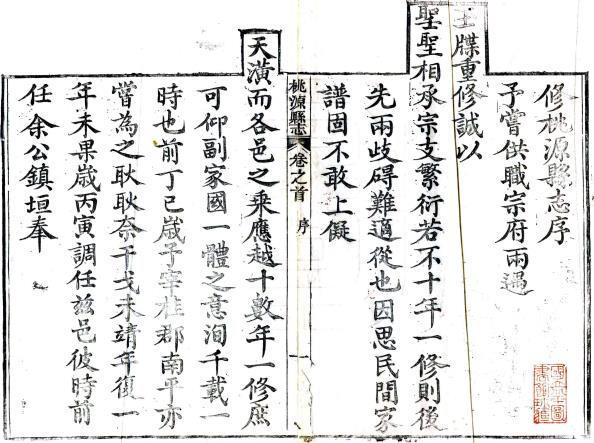 修桃源縣志序
予嘗供職宗府兩遇
玉牒重修誠以
聖聖相承宗支繁衍若不十年一修則後
先兩歧碍難適從也因思民間家
譜固不敢上儗
桃源縣志 卷之首 序 一
天潢而各邑之乘應越十數年一修庶
可仰副家國一體之意洵千載一
時也前丁巳歲予宰桂郡南平亦
嘗為之耿耿奈干戈未靖年復一
年未果歲丙寅調任茲邑彼時前
任余公鎮垣奉